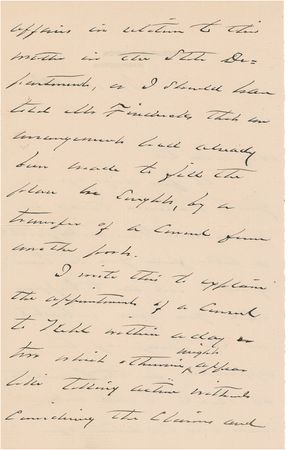 affairs in relation to this
matter in the State De=
partment, or I should have
told Mr. that an
arrangement had already
been made to fill the
place he sought, by a
transfer of a Consul from
another post.
I write this to explain
the appointment of a Consul
to within a day or
two which otherwise might appear
like taking action without
considering the claims and